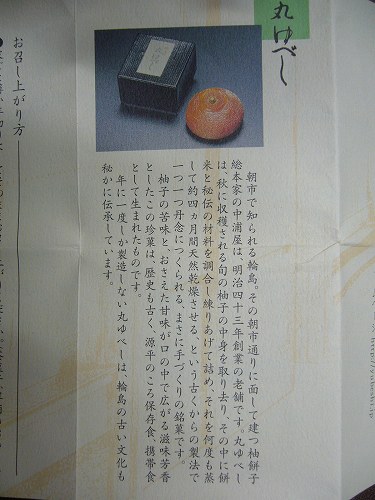 丸ゆべし
朝市で知られる輪島。その朝市通りに面して建つ柚餅子
総本家の中浦屋は、明治四十三年創業の老舗です。丸ゆべし
は、秋に収穫される旬の柚子の中身を取り去り、その中に餅
米と秘伝の材料を調合し練りあげて詰め、それを何度も蒸
して約四ヵ月間天然乾燥させる、という古くからの製法で
一つ一つ丹念につくられる、まさに手づくりの銘菓です。
柚子の苦味と、おさえた甘味が口の中で広がる滋味芳香
としたこの珍菓は、歴史も古く、源平のころ保存食、携帯食
として生まれたものです。
年に一度しか製造しない丸ゆべしは、輪島の古い文化も
秘かに伝承しています。
お召し上がり方